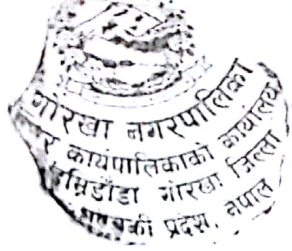 गोरखा नगरपालिका
र कार्यपालिकाको कार्यालय
म्रिडाँडा गोरखा जिल्ला
गण्डकी प्रदेश, नेपाल